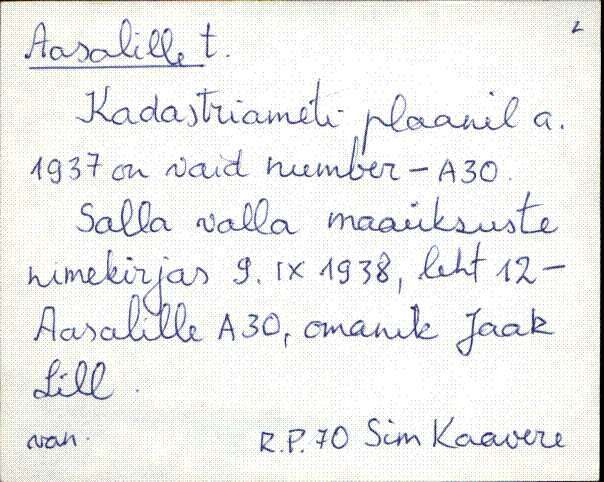 2
Aasalille t.
Kadastriameti plaanil a.
1937 on vaid number - A30.
Salla valla maaüksuste
nimekirjas 9. IX 1938, leht 12 -
Aasalille A30, omanik Jaak
Lill.
van. R.P. 70 Sim Kaavere